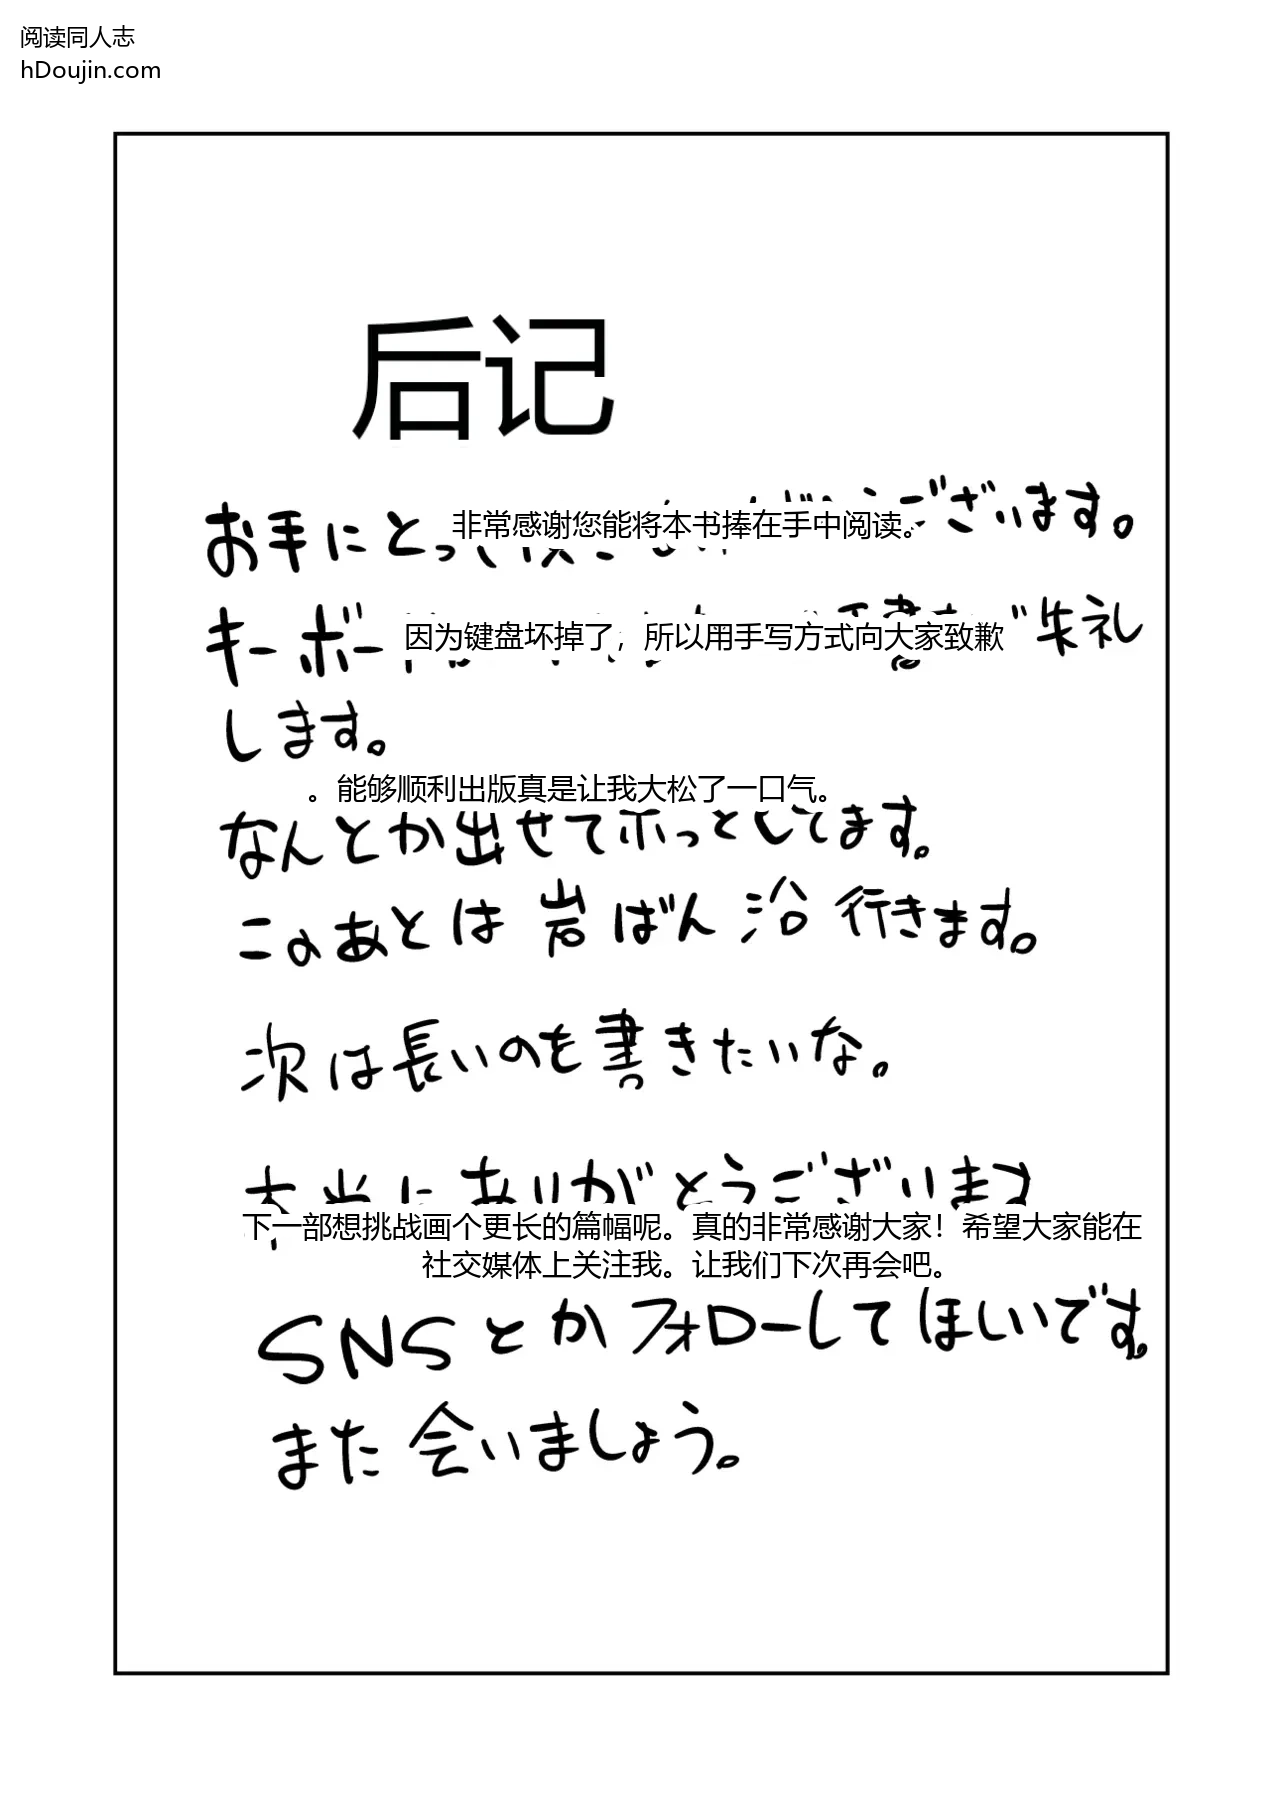 阅读同人志
hDoujin.com
后记
お手にとっ
ございます。
非常感谢您能将本书捧在手中阅读。
キーボー
失礼
因为键盘坏掉了，所以用手写方式向大家致歉
します。
。能够顺利出版真是让我大松了一口气。
なんとか出せてホッとしてます。
このあとは岩ばん浴行きます。
次は長いのを書きたいな。
本当にありがとうございます
下一部想挑战画个更长的篇幅呢。真的非常感谢大家！希望大家能在
社交媒体上关注我。让我们下次再会吧。
SNSとかフォローしてほしいです。
また会いましょう。